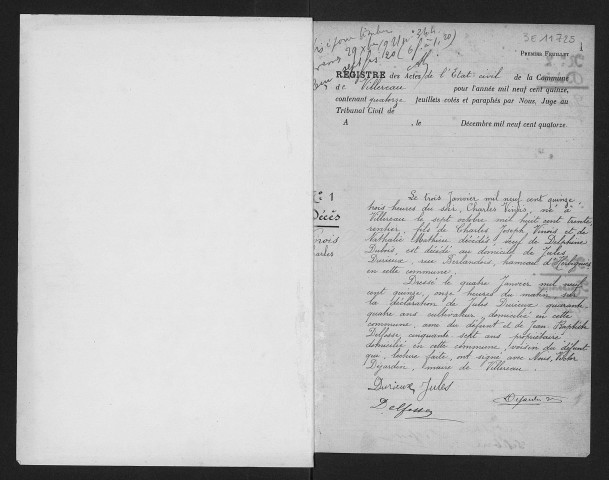 3E 11723
1
PREMIER FEUILLET
REGISTRE des Actes de l'Etat civil de la Commune
de Villereau pour l'année mil neuf cent quinze,
contenant quatorze feuillets cotés et paraphés par Nous, Juge au
Tribunal Civil de
A , le Décembre mil neuf cent quatorze.
N° 1
Décès
Le trois Janvier mil neuf cent quinze
trois heures du soir, Charles Vinois, né à
Villereau le sept octobre mil huit cent trente,
rentier, fils de Charles Joseph, Vinois et de
Nathalie Mathieu décédés, veuf de Delphine
Dubois, est décédé au domicile de Jules,
Durieux, rue hameau
en cette commune.
Dressé le quatre Janvier mil neuf
cent quinze, onze heures du matin sur
la déclaration de Jules Durieux quarante
quatre ans cultivateur, domicilié en cette
commune, du défunt et de Jean Baptiste
Delfosse, cinquante sept ans propriétaire
domicilié en cette commune, voisin du défunt
qui, lecture faite, ont signé avec Nous, Victor
Dejardin, maire de Villereau.
Durieux Jules
Delfosse Dejardin V